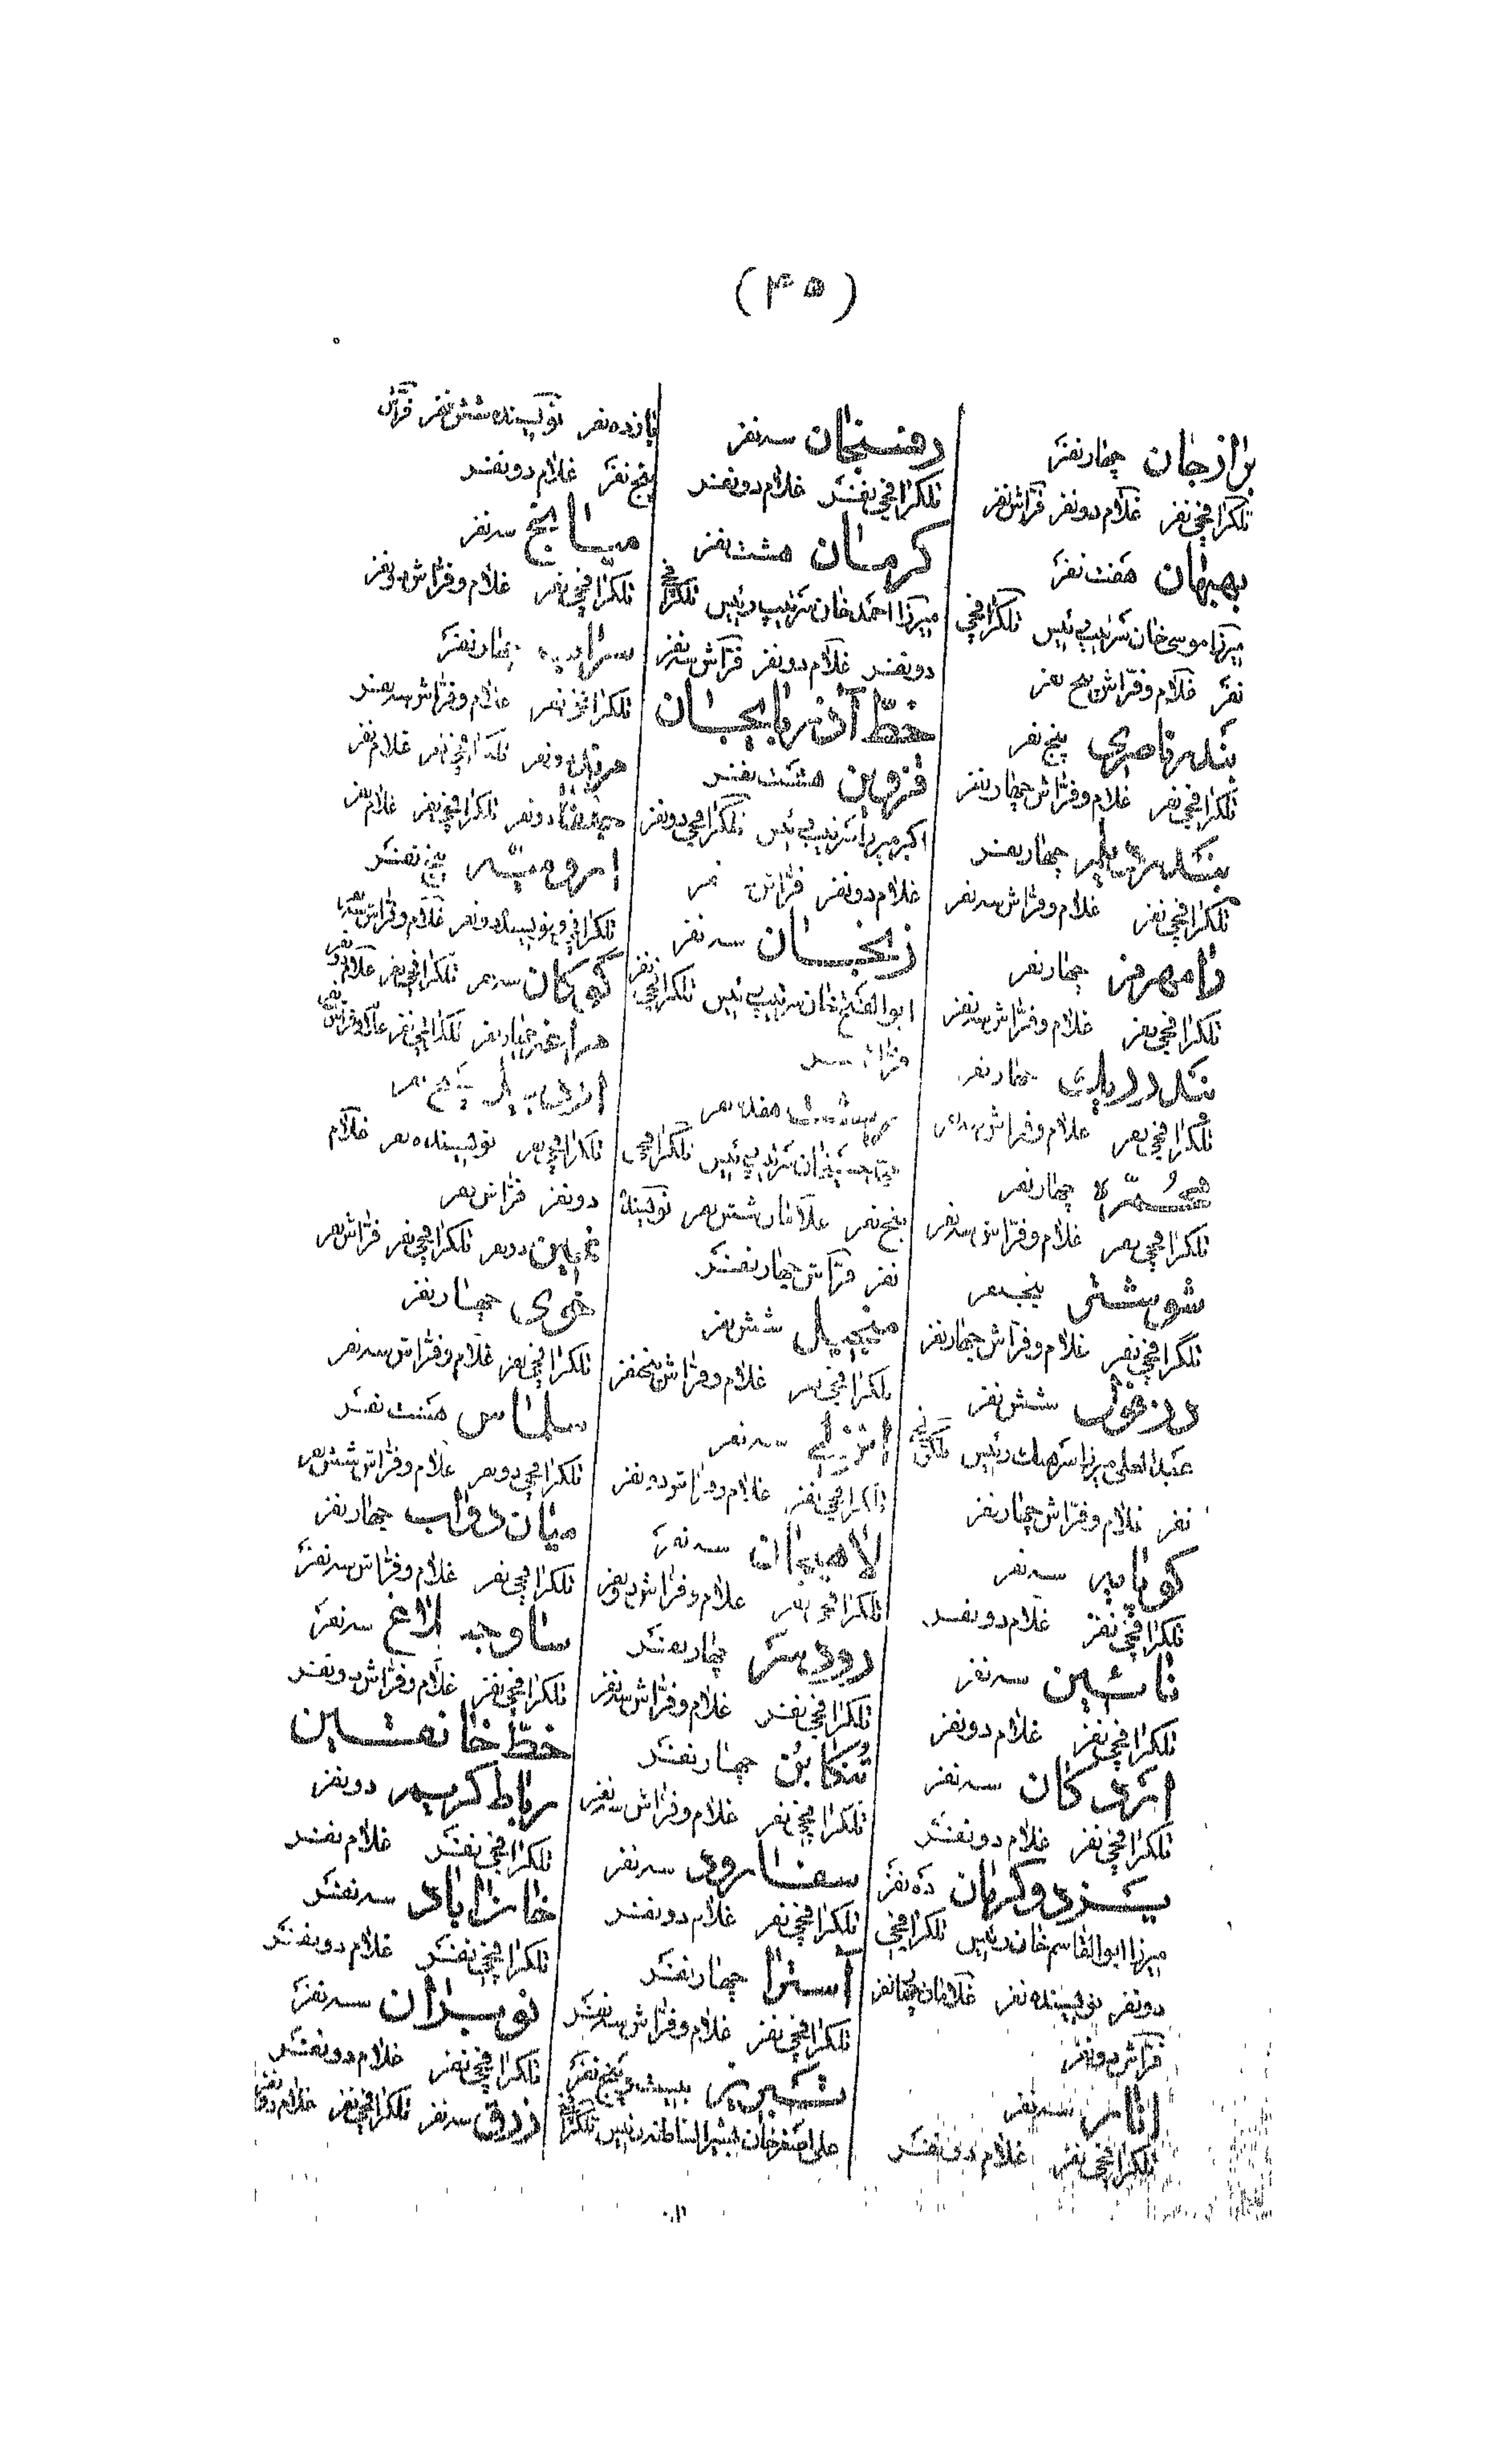 (۴۵)
برازجان چهار نفر
تلگرافچی نفر غلام دو نفر فراش نفر
بهبهان هفت نفر
میرزا موسی خان سرتیپ رئیس تلگرافچی
نفر غلام و فراش پنج نفر
بندر ناصری پنج نفر
تلگرافچی نفر غلام و فراش چهار نفر
بندر دیلم چهار نفر
تلگرافچی نفر غلام و فراش سه نفر
رامهرمز چهار نفر
تلگرافچی نفر غلام و فراش سه نفر
چهار نفر
تلگرافچی نفر غلام و فراش
محمّره چهار نفر
تلگرافچی نفر غلام و فراش سه نفر
شوشتر پنج نفر
تلگرافچی نفر غلام و فراش چهار نفر
دزفول شش نفر
عبدالعلی میرزا سرهنگ رئیس
نفر غلام و فراش چهار نفر
کوپا سه نفر
تلگرافچی نفر غلام دو نفر
نائین سه نفر
تلگرافچی نفر غلام دو نفر
اردکان سه نفر
تلگرافچی نفر غلام دو نفر
یزد و کرمان ده نفر
میرزا ابوالقاسم خان رئیس تلگرافچی
دو نفر نویسنده نفر غلامان چهار نفر
فراش دو نفر
انار سه نفر
تلگرافچی نفر غلام دو نفر
رفسنجان سه نفر
تلگرافچی نفر غلام دو نفر
کرمان هشت نفر
میرزا احمد خان سرتیپ رئیس تلگرافچی
دو نفر غلام دو نفر فراش سه نفر
خطّ آذربایجان
قزوین هشت نفر
اکبر میرزا سرتیپ رئیس تلگرافچی دو نفر
غلام دو نفر فراش نفر
زنجان سه نفر
ابوالفتح خان سرتیپ رئیس تلگرافچی نفر
فراش نفر
رشت هفده نفر
خان سرتیپ رئیس تلگرافچی
پنج نفر غلامان شش نفر نویسنده
نفر فراش چهار نفر
منجیل شش نفر
تلگرافچی نفر غلام و فراش پنج نفر
انزلی سه نفر
تلگرافچی نفر غلام و فراش دو نفر
لاهیجان سه نفر
تلگرافچی نفر غلام و فراش دو نفر
رودسر چهار نفر
تلگرافچی نفر غلام و فراش سه نفر
تُنکابُن چهار نفر
تلگرافچی نفر غلام و فراش سه نفر
سفارود سه نفر
تلگرافچی نفر غلام دو نفر
آستارا چهار نفر
تلگرافچی نفر غلام و فراش سه نفر
تبریز بیست و پنج نفر
علی اصغر خان مشیرالسلطنه رئیس تلگرافچی
پانزده نفر نویسنده شش نفر فراش
پنج نفر غلام دو نفر
میانج سه نفر
تلگرافچی نفر غلام و فراش دو نفر
سراب چهار نفر
تلگرافچی نفر غلام و فراش سه نفر
دو نفر تلگرافچی نفر غلام نفر
دو نفر تلگرافچی نفر غلام نفر
ارومیّه پنج نفر
تلگرافچی و نویسنده دو نفر غلام و فراش سه نفر
گوکان سه نفر تلگرافچی نفر غلام دو نفر
مراغه چهار نفر تلگرافچی نفر غلام و فراش
اردبیل پنج نفر
تلگرافچی نفر نویسنده نفر غلام
دو نفر فراش نفر
نمین دو نفر تلگرافچی نفر فراش نفر
خوی چهار نفر
تلگرافچی نفر غلام و فراش سه نفر
سلماس هشت نفر
تلگرافچی دو نفر غلام و فراش شش نفر
میان دواب چهار نفر
تلگرافچی نفر غلام و فراش سه نفر
ساوجبلاغ سه نفر
تلگرافچی نفر غلام و فراش دو نفر
خطّ خانقین
رباط کریم دو نفر
تلگرافچی نفر غلام نفر
خان‌اباد سه نفر
تلگرافچی نفر غلام دو نفر
نوبران سه نفر
تلگرافچی نفر غلام دو نفر
زرق سه نفر تلگرافچی نفر غلام دو نفر